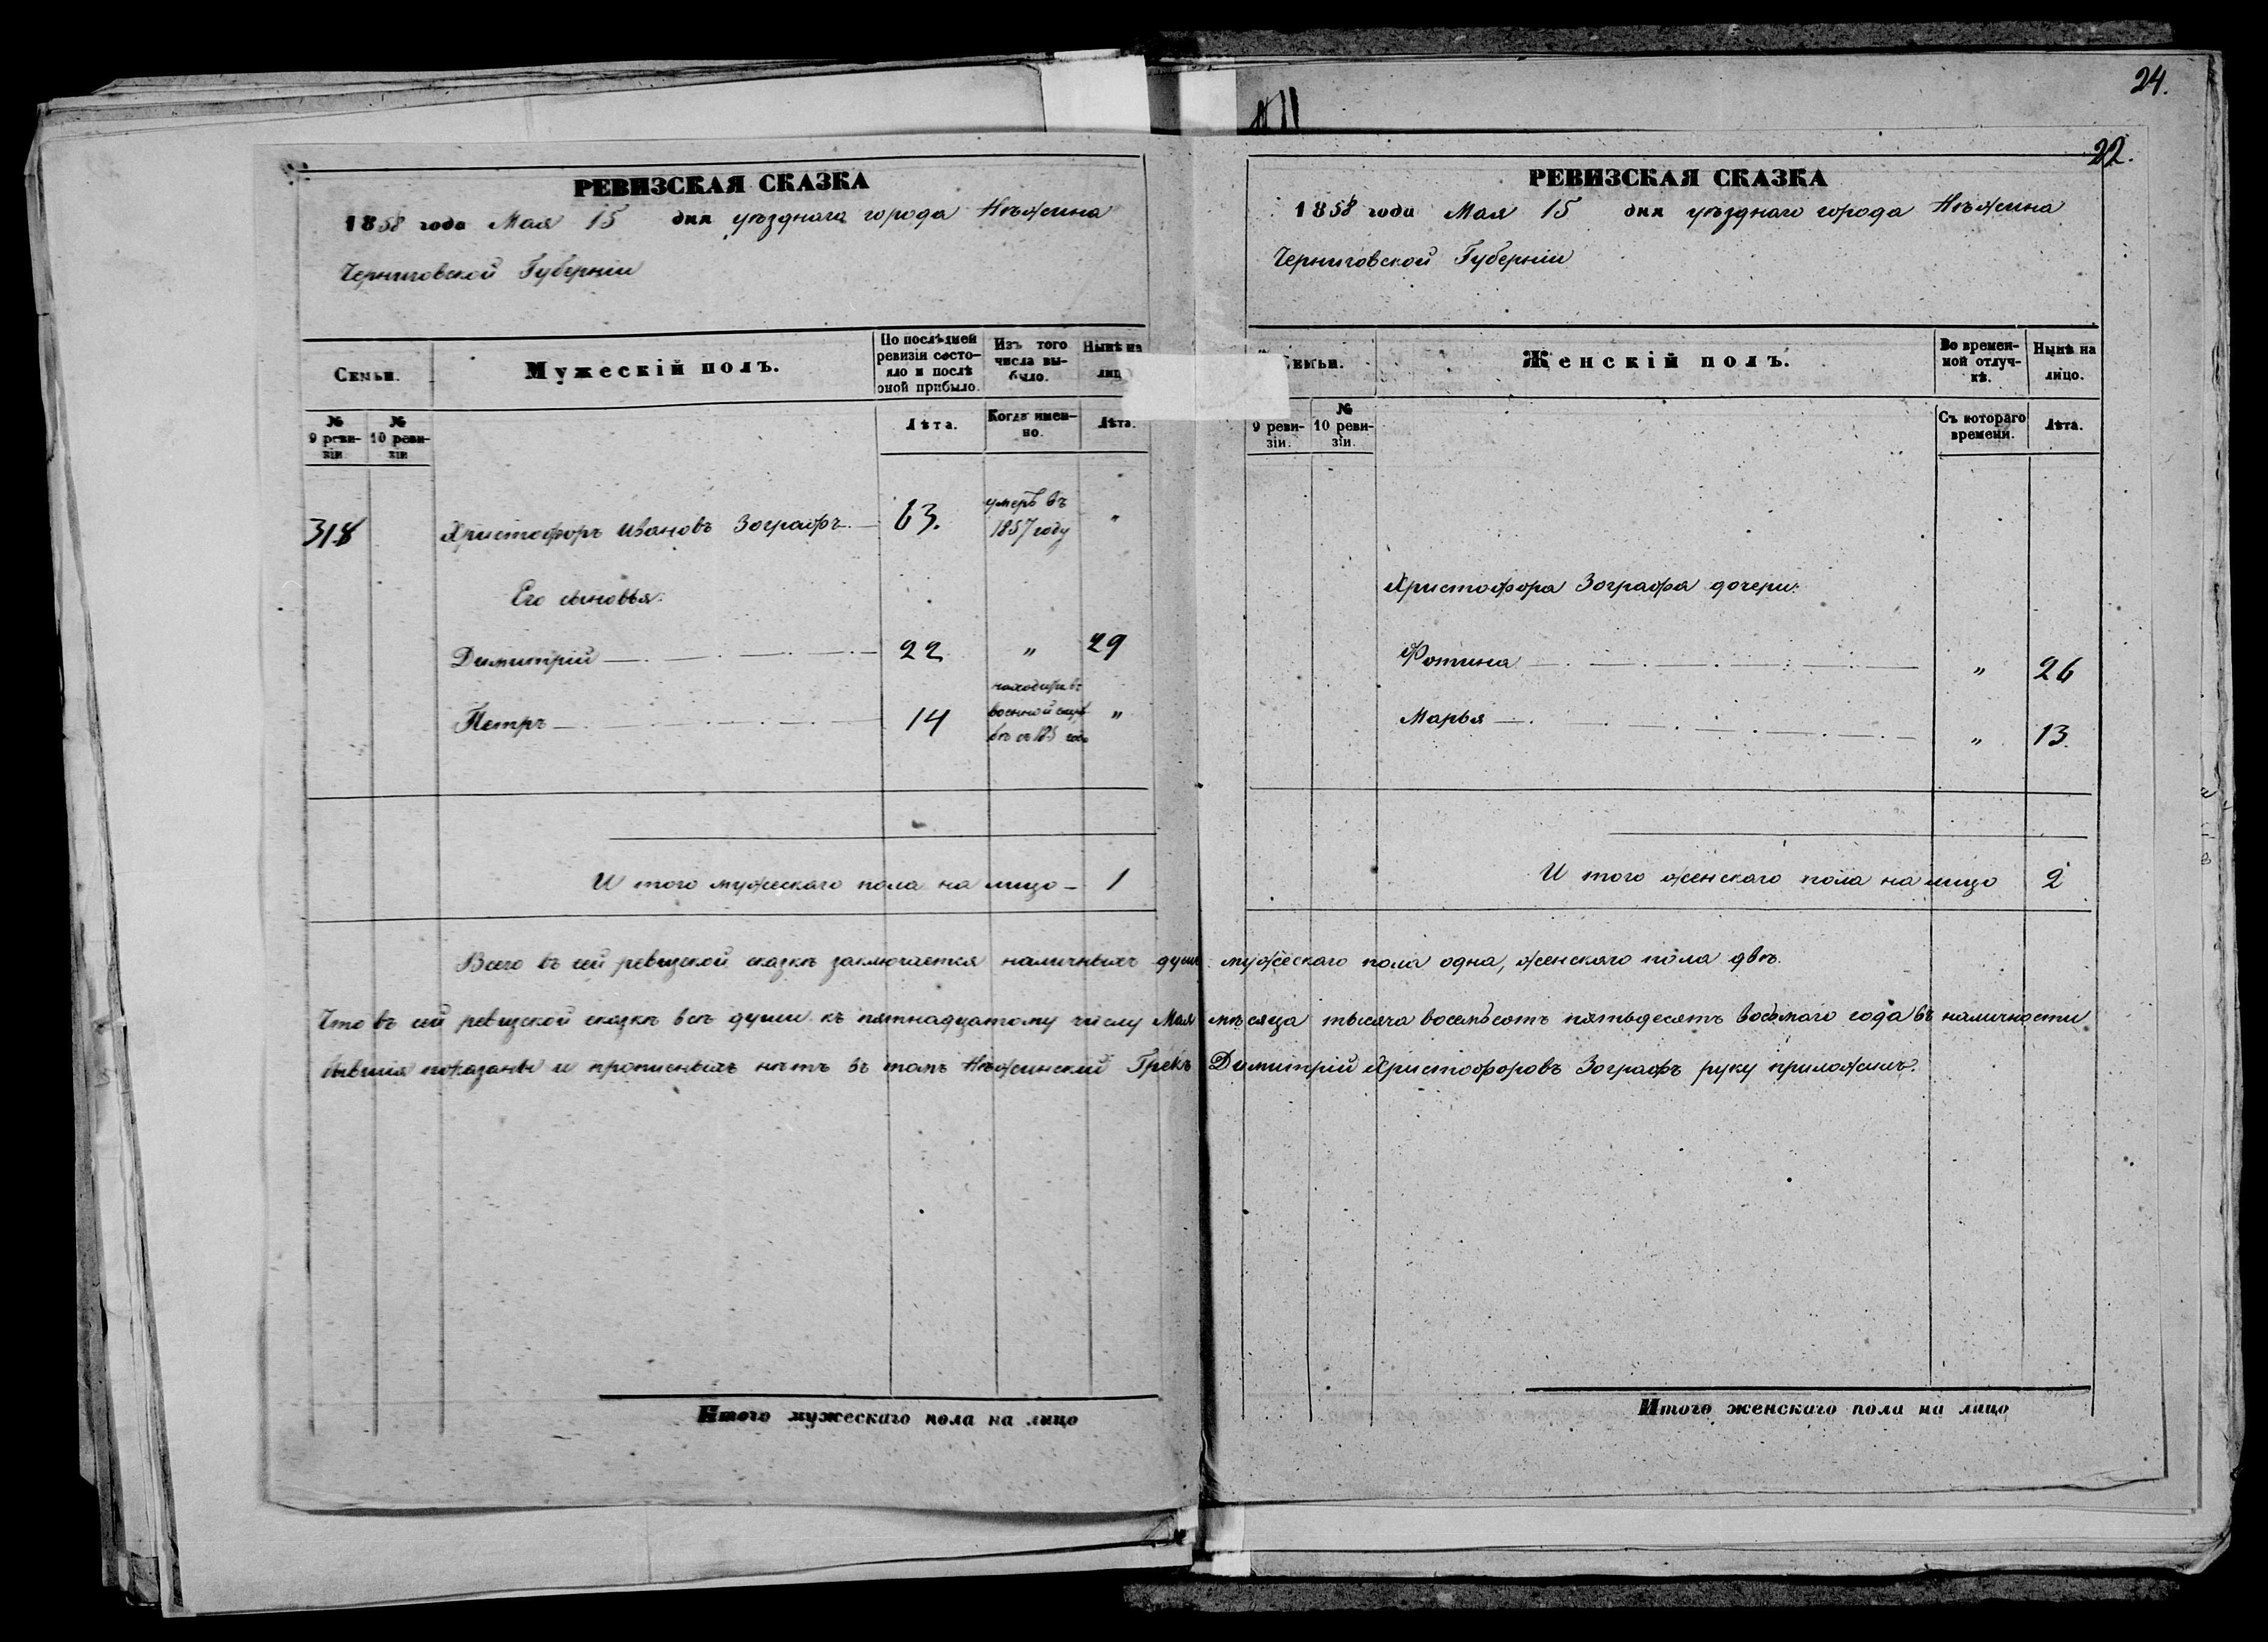 24.
22.
РЕВИЗСКАЯ СКАЗКА
1858 года Мая 15 дня уѣзднаго города Нѣжина
Черниговской Губерніи
Семьи.
Мужескій полъ.
По послѣдней
ревизіи состо-
яло и послѣ
оной прибыло.
Изъ того
числа вы-
было.
Нынѣ на
лиц
№
9 реви-
зіи
№
10 реви-
зіи
Лѣта.
Когда имен-
но.
Лѣта.
318 Христофоръ Ивановъ Зографъ 63. умеръ въ
1857 году "
Его сыновья:
Димитрій 22 " 29
Петръ 14 находится въ
военной служ
бѣ съ 185 года "
И того мужескаго пола на лицо — 1
РЕВИЗСКАЯ СКАЗКА
1858 года Мая 15 дня уѣзднаго города Нѣжина
Черниговской Губерніи
Семьи.
Женскій полъ.
Во времен-
ной отлуч-
кѣ.
Нынѣ на
лицо.
9 реви-
зіи.
№
10 реви-
зіи.
Съ котораго
времени.
Лѣта.
Христофора Зографа дочери:
Фотина " 26
Марья " 13.
И того женскаго пола на лицо 2
Всего въ сей ревизской сказкѣ заключается наличныхъ душъ мужескаго пола одна, женскаго пола двѣ.
Что въ сей ревизской сказкѣ всѣ души къ пятнадцатому числу Мая мѣсяца тысяча восемьсотъ пятьдесятъ восьмаго года въ наличности
бывшія показаны и прописныхъ нѣтъ въ томъ Нѣжинскій Грекъ Димитрій Христофоровъ Зографъ руку приложилъ.
Итого мужескаго пола на лицо
Итого женскаго пола на лицо